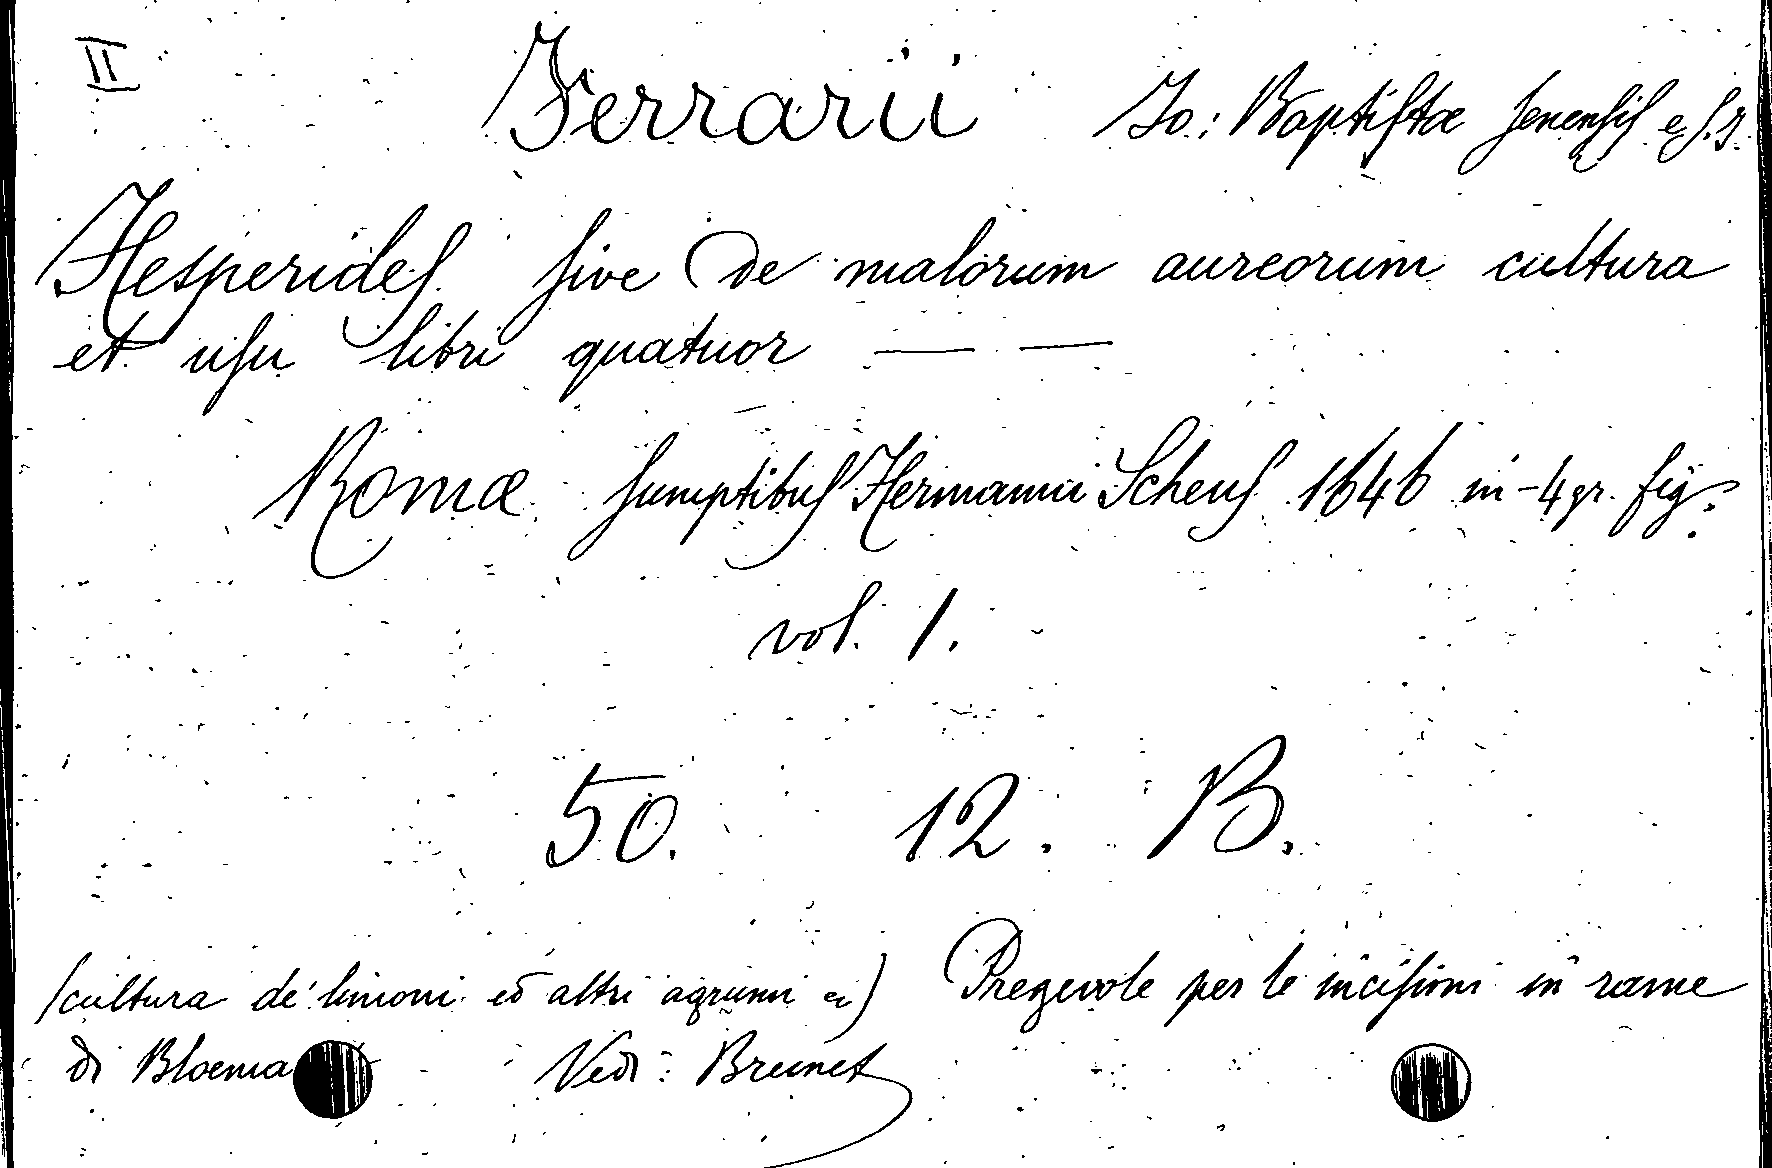 II
Ferrarii Jo: Baptistæ Senensis e S. J.
Hesperides sive de malorum aureorum cultura
et usu libri quatuor — —
Romæ sumptibus Hermanni Scheus 1646 in-4 gr. fig.
vol. 1.
50. 12. B.
(cultura de' limoni ed altri agrumi) Pregevole per le incisioni in rame
di Bloema Vedi: Brunet